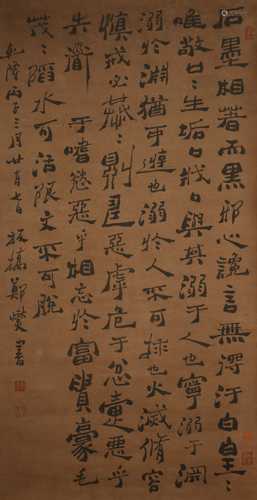 石墨相著而黑邪心讒言無得汙白皇〻
唯敬口〻生垢口戕口與其溺于人也寧溺于淵
溺於淵猶可游也溺於人不可救也火滅脩容
慎戒必恭〻則壽惡虖危于忿疐惡乎
失衟于嗜慾惡乎相忘於富貴豪毛
茂〻陷水可活陷文不可脫
乾隆丙子三月廿有七日板橋鄭燮書